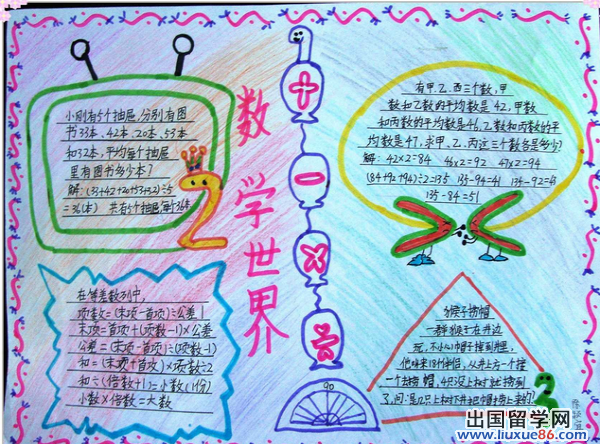 数学世界
小刚有5个抽屉,分别有图
书33本、42本、20本、53本
和32本,平均每个抽屉
里有图书多少本?
解:(33+42+20+53+32)÷5
=36(本) 共有5个抽屉每个36本
有甲、乙、丙三个数,甲
数和乙数的平均数是42,甲数
和丙数的平均数是46,乙数和丙数的平
均数是47,求甲、乙、丙这三个数各是多少?
解:42×2=84 46×2=92 47×2=94
(84+92+94)÷2=135 135-94=41 135-92=43
135-84=51
在等差数列中,
项数=(末项-首项)÷公差+1
末项=首项+(项数-1)×公差
公差=(末项-首项)÷(项数-1)
和=(末项+首项)×项数÷2
和÷(倍数+1)=小数(1份)
小数×倍数=大数
猴子捞帽
一群猴子在井边
玩,不小心帽子掉到井里,
个去捞帽,
90
出国留学网
www.liuxue86.com